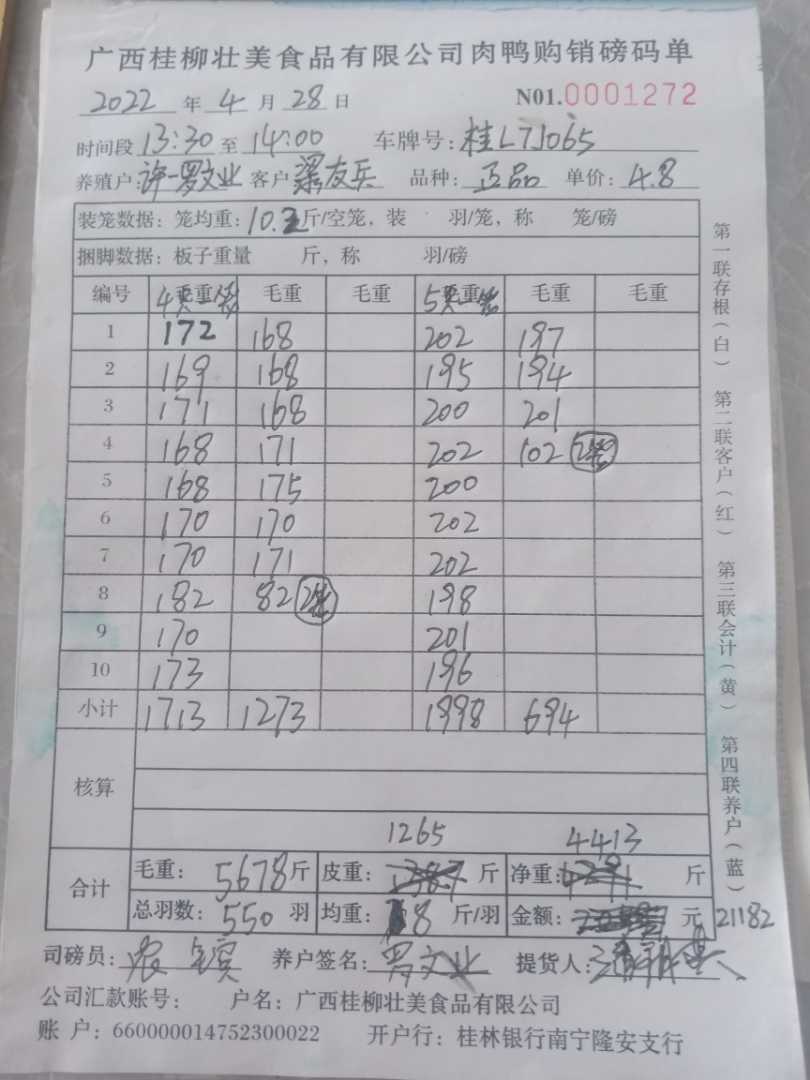 广西桂柳壮美食品有限公司肉鸭购销磅码单
2022 年 4 月 28 日 N01.0001272
时间段 13:30 至 14:00 车牌号: 桂L7J065
养殖户: 许一罗文业 客户 梁友兵 品种: 正品 单价: 4.8
装笼数据: 笼均重: 10. 斤/空笼, 装 羽/笼, 称 笼/磅
捆脚数据: 板子重量 斤, 称 羽/磅
编号 4 毛重 毛重 毛重 5 毛重 毛重 毛重
1 172 168 202 197
2 169 168 195 194
3 171 168 200 201
4 168 171 202 102 2笼
5 168 175 200
6 170 170 202
7 170 171 202
8 182 82 2笼 198
9 170 201
10 173 196
小计 1713 1273 1998 694
核算
1265 4413
合计 毛重: 5678 斤 皮重: 斤 净重: 斤
总羽数: 550 羽 均重: 8 斤/羽 金额: 元 21182
司磅员: 养户签名: 罗文业 提货人:
公司汇款账号: 户名: 广西桂柳壮美食品有限公司
账 户: 660000014752300022 开户行: 桂林银行南宁隆安支行
第一联存根(白) 第二联客户(红) 第三联会计(黄) 第四联养户(蓝)